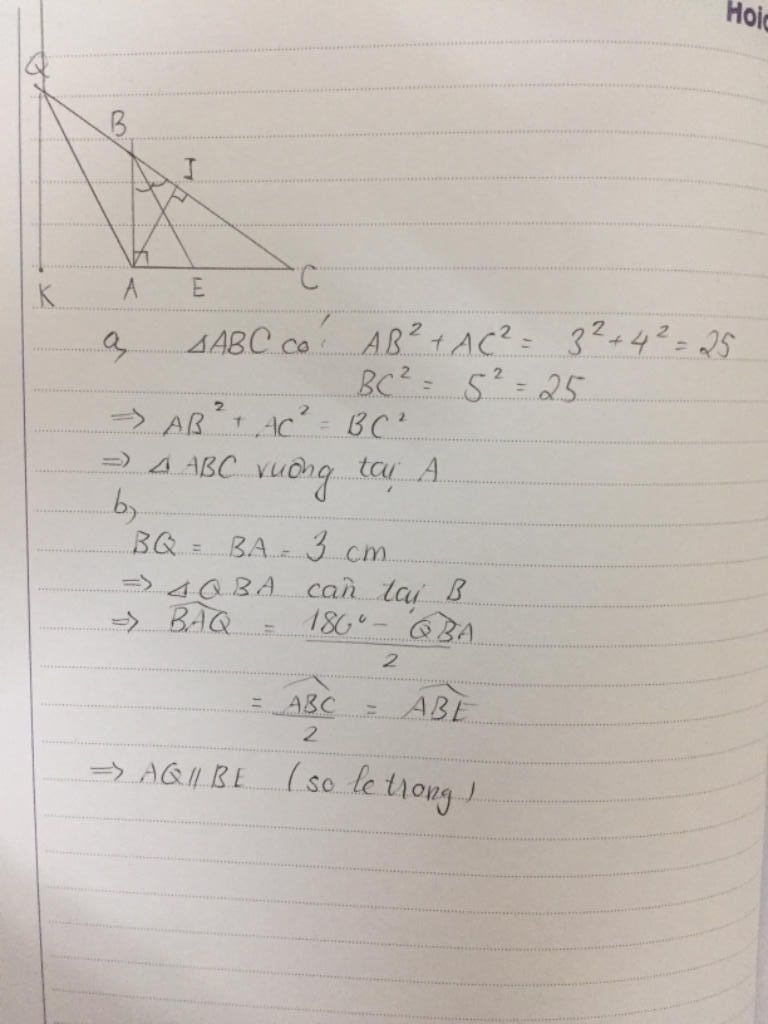 Q
B
I
K
A
E
C
a, △ABC có: AB² + AC² = 3² + 4² = 25
BC² = 5² = 25
=> AB² + AC² = BC²
=> △ABC vuông tại A
b,
BQ = BA = 3 cm
=> △QBA cân tại B
=> \widehat{BAQ} = \frac{180° - \widehat{QBA}}{2}
= \frac{\widehat{ABC}}{2} = \widehat{ABE}
=> AQ // BE (so le trong)